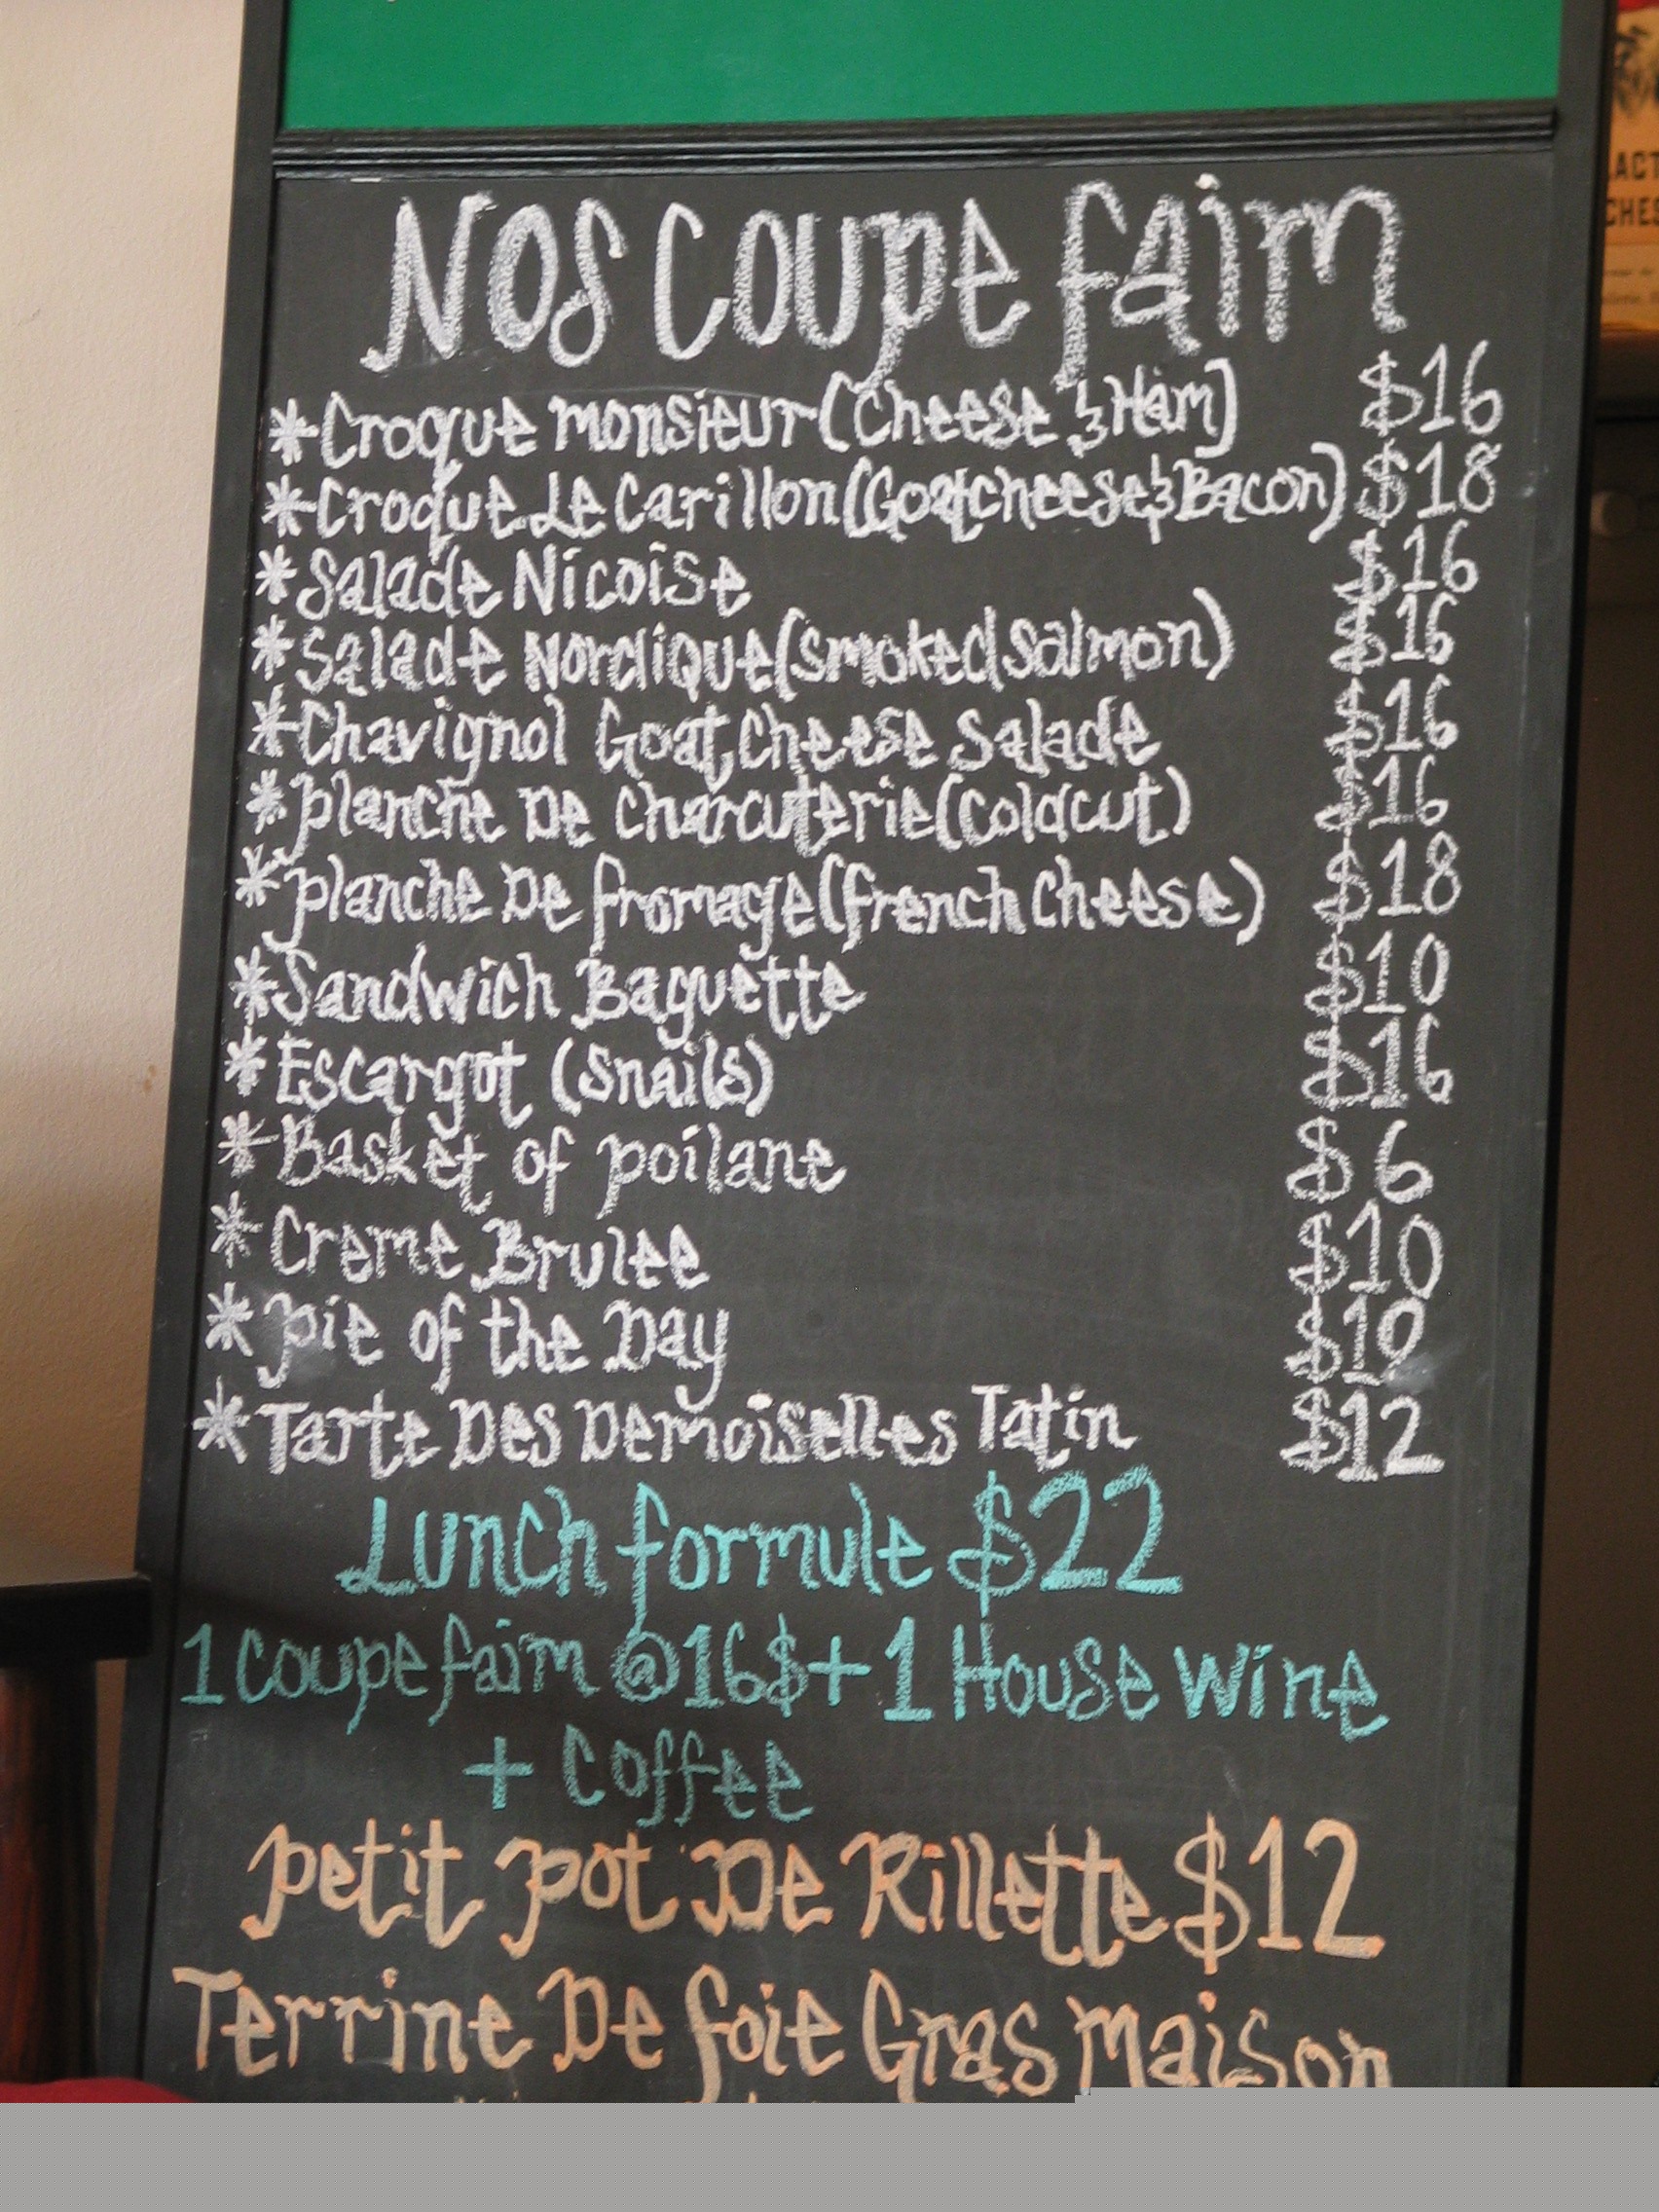 Nos coupe faim
*Croque monsieur (Cheese & Ham) $16
*Croque Le Carillon (Goat cheese & Bacon) $18
*Salade Nicoise $16
*Salade Nordique (smoked salmon) $16
*Chavignol Goat Cheese Salade $16
*Planche De charcuterie (coldcut) $16
*Planche De fromage (french cheese) $18
*Sandwich Baguette $10
*Escargot (snails) $16
*Basket of poilane $6
*Creme Brulee $10
*Pie of the Day $10
*Tarte Des Demoiselles Tatin $12
Lunch formule $22
1 coupe faim @16$ + 1 House Wine
+ Coffee
Petit Pot De Rillette $12
Terrine De foie Gras Maison
LACT
CHES